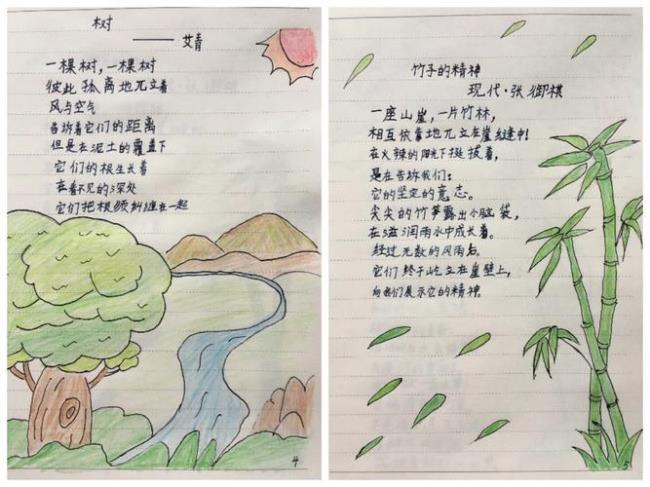 树
——艾青
一棵树,一棵树
彼此孤离地兀立着
风与空气
告诉着它们的距离
但是在泥土的覆盖下
它们的根生长着
在看不见的深处
它们把根须纠缠在一起
4
竹子的精神
现代·张御祺
一座山崖,一片竹林,
相互依靠地兀立在崖缝中!
在火辣的阳光下挺拔着,
是在告诉我们:
它的坚定的意志。
尖尖的竹笋露出小脑袋,
在滋润雨水中成长着。
经过无数的风雨后。
它们终于屹立在崖壁上,
向我们展示它的精神。
5